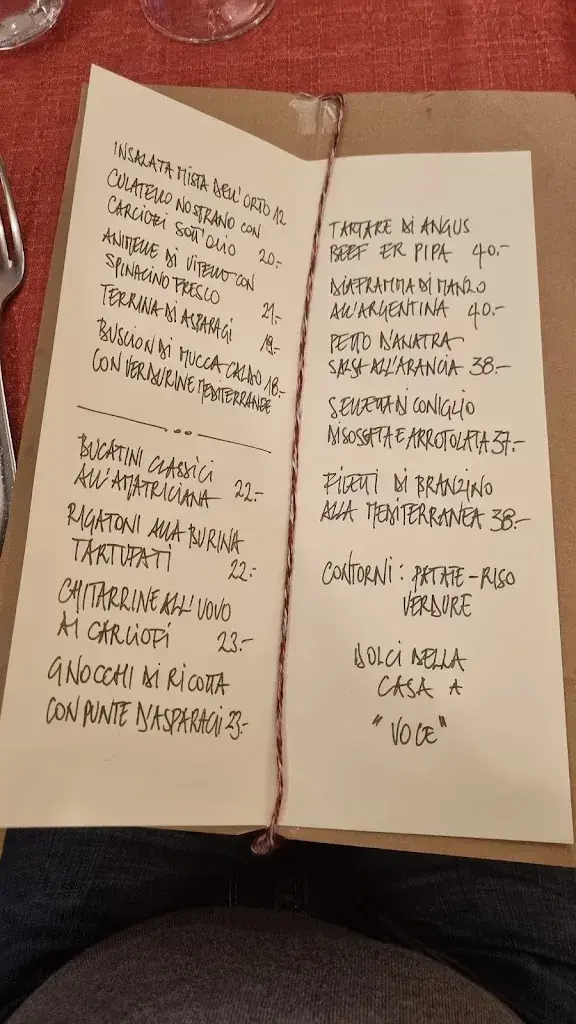 INSALATA MISTA DELL'ORTO 12
CULATELLO NOSTRANO CON
CARCIOFI SOTT'OLIO 20.-
ANIMELLE DI VITELLO CON
SPINACINO FRESCO 21.-
TERRINA DI ASPARAGI 19.-
BUSCION DI MUCCA CALDO 18.-
CON VERDURINE MEDITERRANEE
BUCATINI CLASSICI
ALL'AMATRICIANA 22.-
RIGATONI ALLA BURINA
TARTUFATI 22.-
CHITARRINE ALL'UOVO
AI CARCIOFI 23.-
GNOCCHI DI RICOTTA
CON PUNTE D'ASPARAGI 23.-
TARTARE DI ANGUS
BEEF ER PIPA 40.-
DIAFRAMMA DI MANZO
ALL'ARGENTINA 40.-
PETTO D'ANATRA
SALSA ALL'ARANCIA 38.-
SELLETTA DI CONIGLIO
DISOSSATA E ARROTOLATA 37.-
FILETTI DI BRANZINO
ALLA MEDITERRANEA 38.-
CONTORNI: PATATE-RISO
VERDURE
DOLCI DELLA
CASA A
"VOCE"